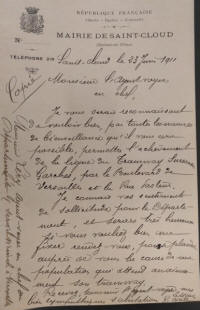 RÉPUBLIQUE FRANÇAISE
Liberté - Égalité - Fraternité
MAIRIE DE SAINT-CLOUD
TÉLÉPHONE
Saint-Cloud, le 23 Juin 1911
Copie
Monsieur l'Agent voyer
en chef,
Je vous serais reconnaissant
de vouloir bien, par toute la mesure
de bienveillance qu'il vous sera
possible, permettre l'achèvement
de la ligne du Tramway Suresnes
Garches, par le Boulevard de
Versailles et la Rue Pasteur.
Je connais vos sentiments
de sollicitude pour le Département
, et serais très heureux
si vous vouliez bien me
fixer rendez-vous, pour plaider
auprès de vous la cause de ma
population qui attend anxieusement
son tramway.
Recevez, Monsieur l'Agent voyer, mes
bien sympathiques salutations
Monsieur
Agent voyer en chef du
Département de